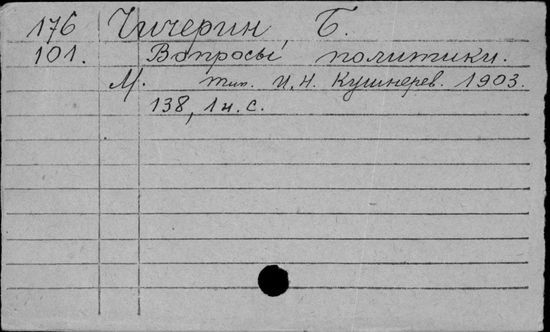 176 Чичерин, Б.
101. Вопросы политики.
М. тип. И.Н. Кушнерев. 1903.
138, 1 н. с.